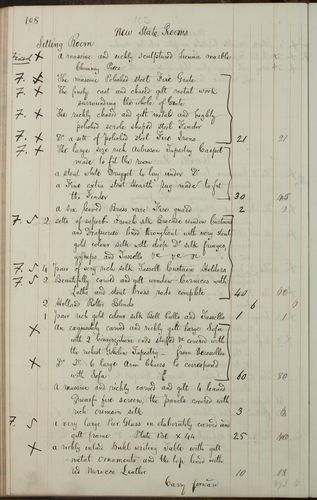 108
New State Rooms
Sitting Room
Fixed x a massive and richly sculptured Sienna marble
Chimney Piece
F. x The massive Polished Steel Fire Grate
F. x The finely cast and chased gilt metal work
surrounding the whole of Grate
F. x The richly chased and gilt metal and highly
polished scrole shaped Steel Fender
F. x Do a sett of polished Steel Fire Irons 21 21
F. x The large size rich Aubusson Tapestry Carpet
made to fit the room
a stout white Drugget to lay under Do
a Fine extra stout Hearth Rug made to fit
the Fender 30
a Six leaved Brass wire Fire guard 2 2
F. S 2 setts of superb French silk Brocade window Curtains
and Draperies lined throughout with very stout
gold colour silk with deep Do silk fringes,
gymps, and Tassells
F. S 4 pair of very rich silk Tassell Curtain Holders
F. S 2 Beautifully carved and gilt window Cornices with
Laths and stout brass rods complete 40 60
2 Holland Roller Blinds 6 6
1 pair rich gold colour silk Bell Pulls and Tassells 1 1
x An exquisitely carved and richly gilt large Sofa
with 2 conversation ends stuffed & covered with
the richest Gobelin Tapestry - from Versailles
x Do Do 6 large Arm Chairs to correspond
with Sofa 60 80
A massive and richly carved and gilt 4 leaved
Draft fire screen, the panels covered with
rich crimson silk 3
F. S a very large Pier Glass in elaborately carved and
gilt frame Plate 108 x 44 25
x a richly inlaid Buhl writing Table with gilt
metal ornaments and the top lined with
red Morocco Leather 10
Carry forward